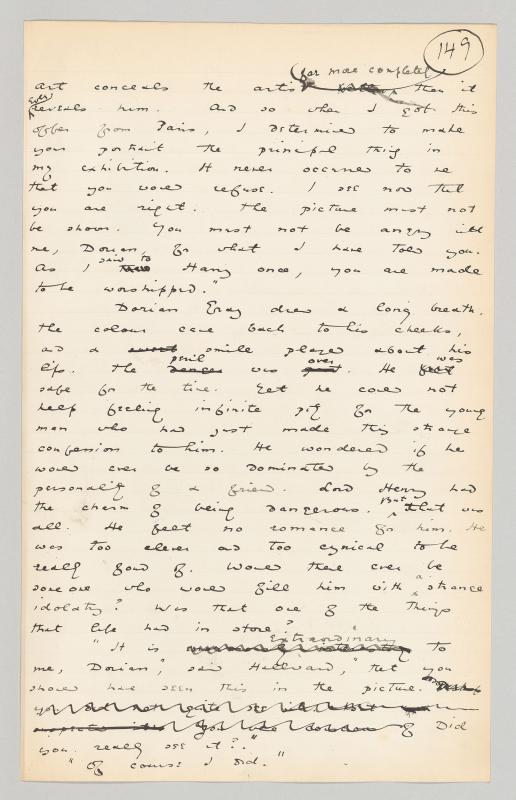 149
far more completely
art conceals the artist than it
ever reveals him. And so when I got this
offer from Paris, I determined to make
your portrait the principal thing in
my exhibition. It never occurred to me
that you would refuse. I see now that
you are right. The picture must not
be shown. You must not be angry with
me, Dorian, for what I have told you.
As I said to Harry once, you are made
to be worshipped."
Dorian Gray drew a long breath.
The colour came back to his cheeks,
and a smile played about his
lips. The peril was over. He was
safe for the time. Yet he could not
help feeling infinite pity for the young
man who had just made this strange
confession to him. He wondered if he
would ever be so dominated by the
personality of a friend. Lord Henry had
the charm of being dangerous. But that was
all. He felt no romance for him. He
was too clever and too cynical to be
really fond of. Would there ever be
someone who would fill him with a strange
idolatry? Was that one of the things
that life had in store?
"It is extraordinary to
me, Dorian", said Hallward, "that you
should have seen this in the picture.
Did
you really see it?."
"Of course I did."